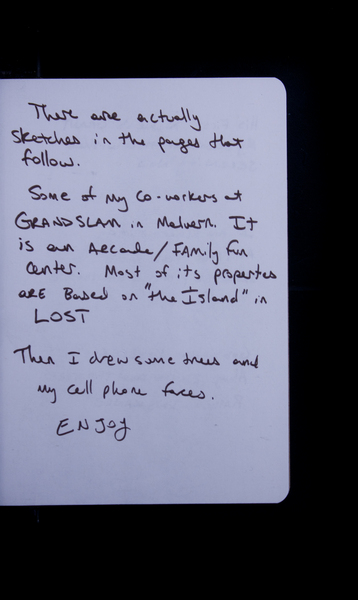 There are actually
sketches in the pages that
follow.
Some of my co-workers at
GRANDSLAM in Malvern. It
is an Arcade/Family Fun
Center. Most of its properties
are Based on "the Island" in
LOST
Then I drew some trees and
my cell phone faces.
ENJOY